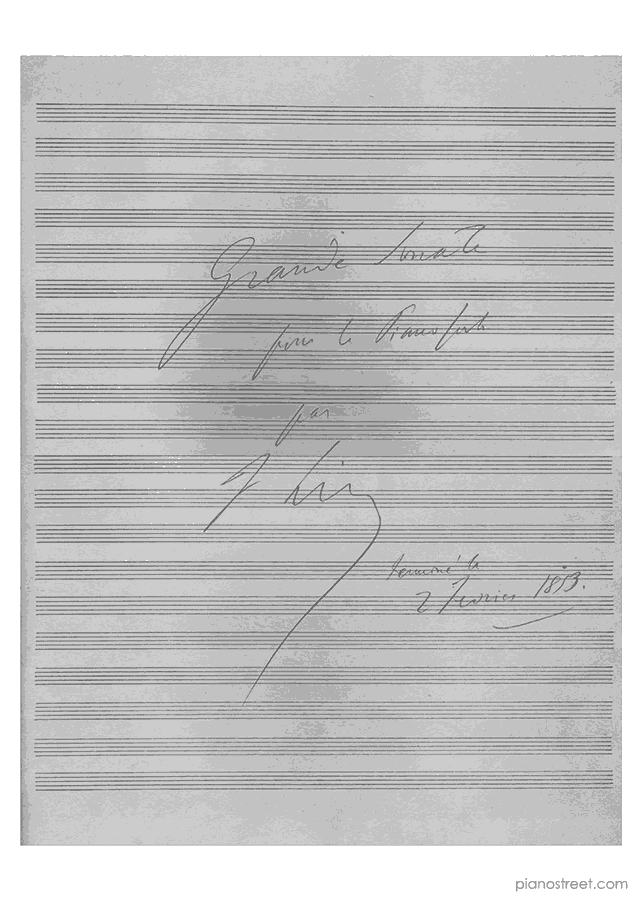 Grande Sonate
pour le Pianoforte
par
F Liszt
terminé le
2 Février 1853.
pianostreet.com